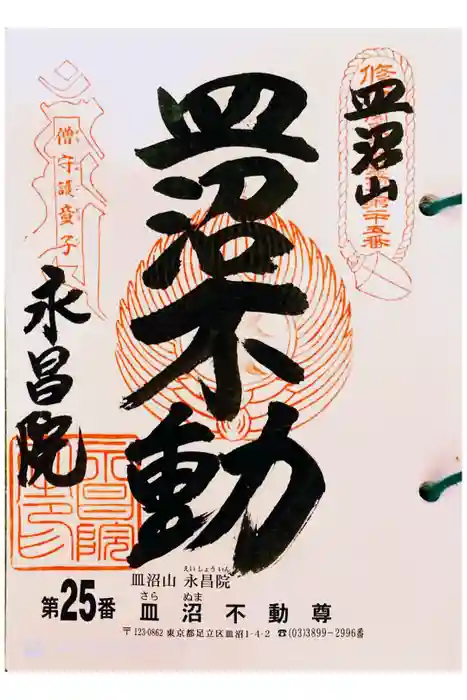 皿沼山
第二十五番
皿沼不動
僧守護童子
永昌院
皿沼山 永昌院
えいしょういん
第25番 皿沼不動尊
さら ぬま
〒123-0862 東京都足立区皿沼1-4-2 ☎(03)3899-2996番